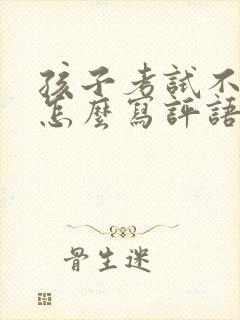 孩子考試不
怎麼寫評語
骨生迷